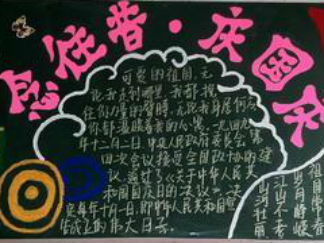 忆往昔·庆国庆
可爱的祖国,无
论我走到哪里,我都挽
住你的臂膀,无论我身居何方
你都温暖着我的心窝。一九四九
年十二月二日,中央人民政府委员会第
四次会议接受全国政协的建
议,通过了《关于中华人民共
和国国庆日的决议》,决
定每年十月一日,即中华人民共和国宣
告成立的伟大日子
祖国常青
岁月峥嵘
江山不老
山河壮丽